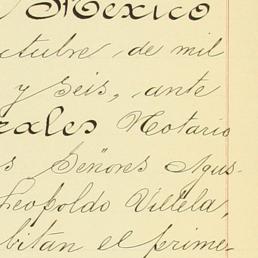 Mexico
ctubre de mil
y seis, ante
rales Notario
s Señores Agus-
Leopoldo Villela,
bitan el prime-